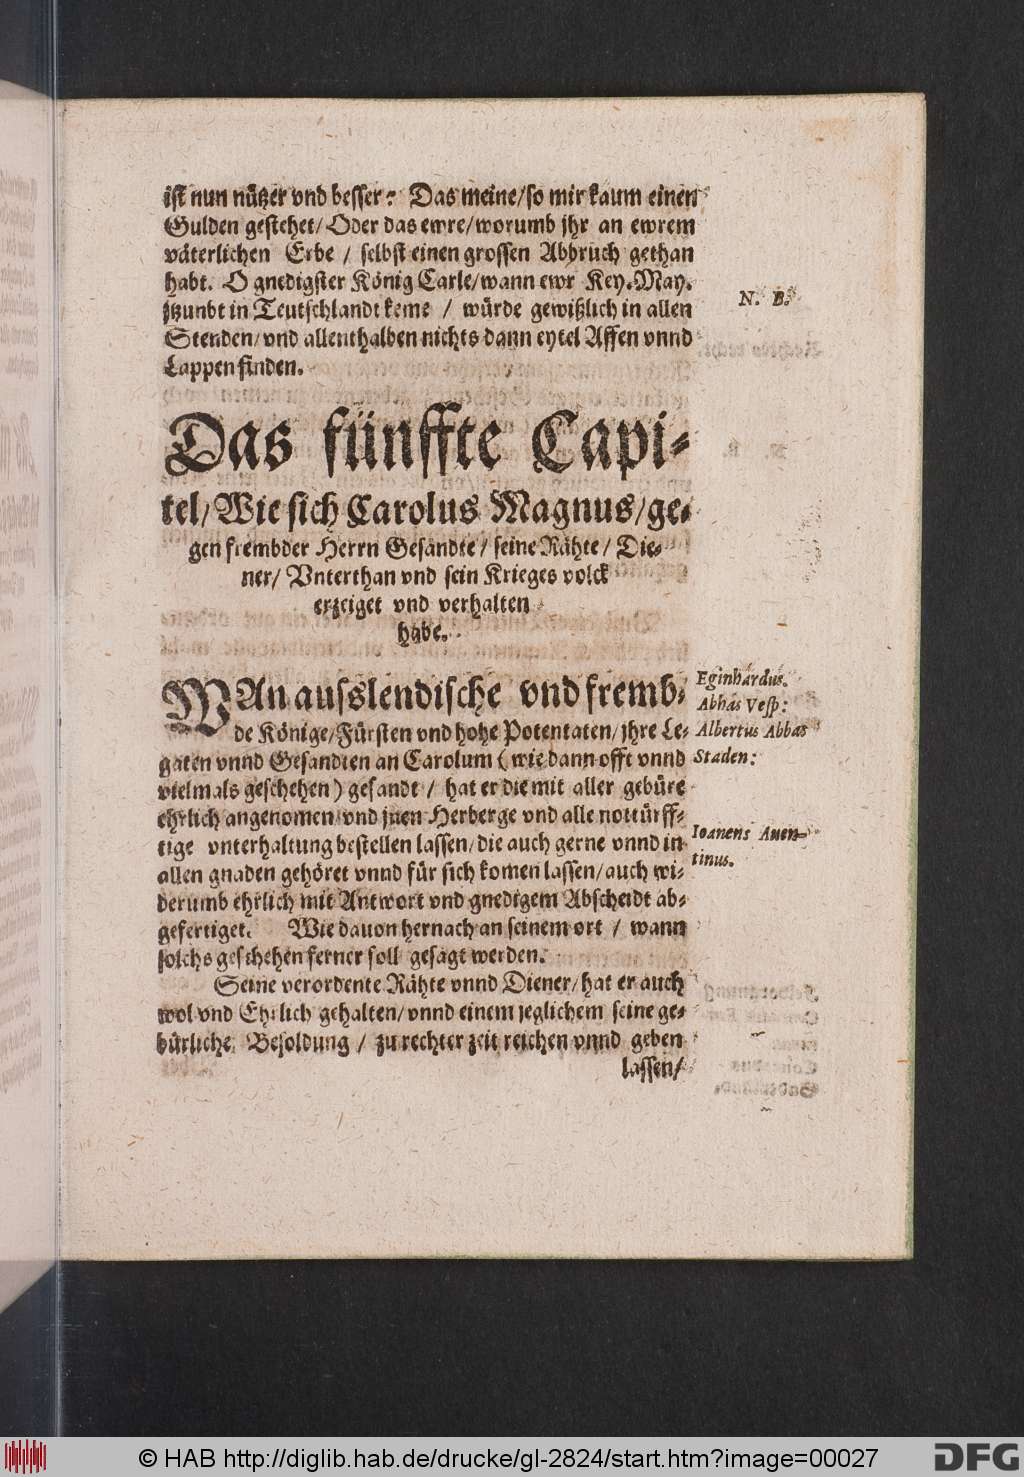 ist nun nützer vnd besser? Das meine/so mir kaum einen
Gulden gestehet/Oder das ewre/worumb jhr an ewrem
väterlichen Erbe / selbst einen grossen Abbruch gethan
habt. O gnedigster König Carle/wann ewr Key.May.
jtzundt in Teutschlandt keme / würde gewißlich in allen
Stenden/vnd allenthalben nichts dann eytel Affen vnnd
Lappen finden.
N. B.
Das fünffte Capi-
tel/Wie sich Carolus Magnus/ge-
gen frembder Herrn Gesandte/seine Rähte/Die-
ner/Vnterthan vnd sein Krieges volck
erzeiget vnd verhalten
habe.
WAn ausslendische vnd fremb-
de Könige/Fürsten vnd hohe Potentaten/jhre Le-
gaten vnnd Gesandten an Carolum (wie dann offt vnnd
vielmals geschehen) gesandt / hat er die mit aller gebüre
ehrlich angenomen/vnd jnen Herberge vnd alle nottürff-
tige vnterhaltung bestellen lassen/die auch gerne vnnd in
allen gnaden gehöret vnnd für sich komen lassen/auch wi-
derumb ehrlich mit Antwort vnd gnedigem Abscheidt ab-
gefertiget. Wie dauon hernach an seinem ort / wann
solchs geschehen ferner soll gesagt werden.
Eginhardus.
Abbas Vesp:
Albertus Abbas
Staden:
Ioanens Auen-
tinus.
Seine verordente Rähte vnnd Diener/hat er auch
wol vnd Ehrlich gehalten/vnnd einem jeglichem seine ge-
bürliche Besoldung / zu rechter zeit reichen vnnd geben
lassen/
© HAB http://diglib.hab.de/drucke/gl-2824/start.htm?image=00027
DFG